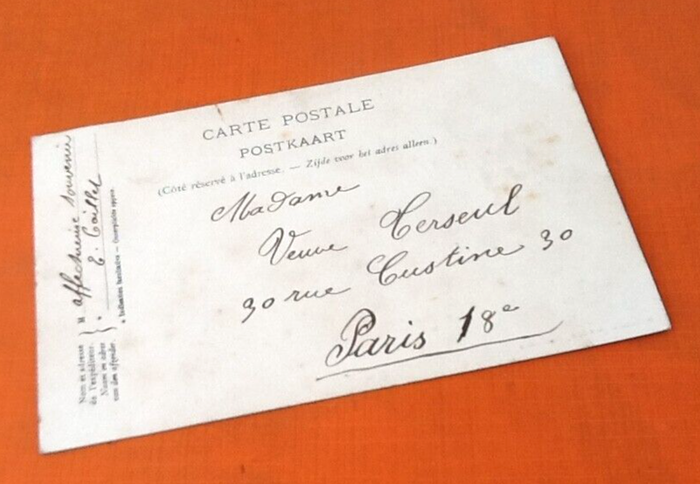 CARTE POSTALE
POSTKAART
(Côté réservé à l'adresse. — Zijde voor het adres alleen.)
Madame
Veuve Terseul
30 rue Custine 30
Paris 18e
Nom et adresse
de l'expéditeur.
Naam en adres
van den afzender.
M
affectueux souvenir
E. Caillet